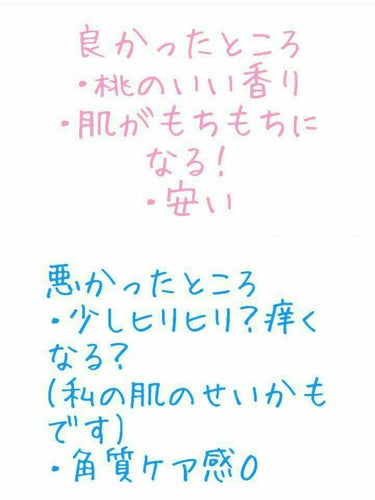 良かったところ
・桃のいい香り
・肌がもちもちに
なる!
・安い
悪かったところ
・少しヒリヒリ?痒く
なる?
(私の肌のせいかも
です)
・角質ケア感0